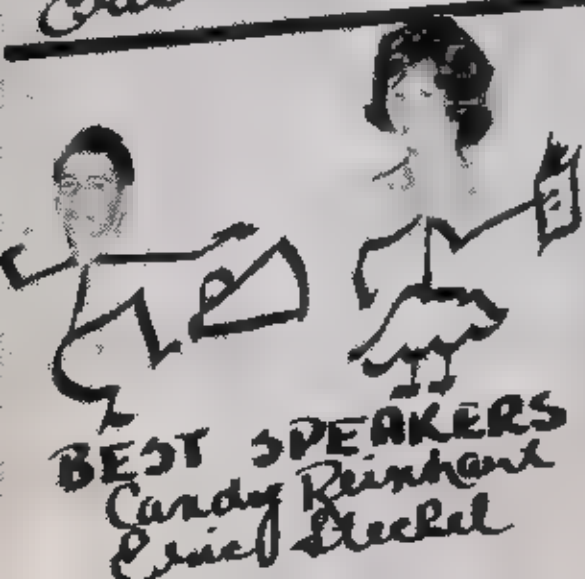 BEST SPEAKERS
Candy Reinhart
Steckel